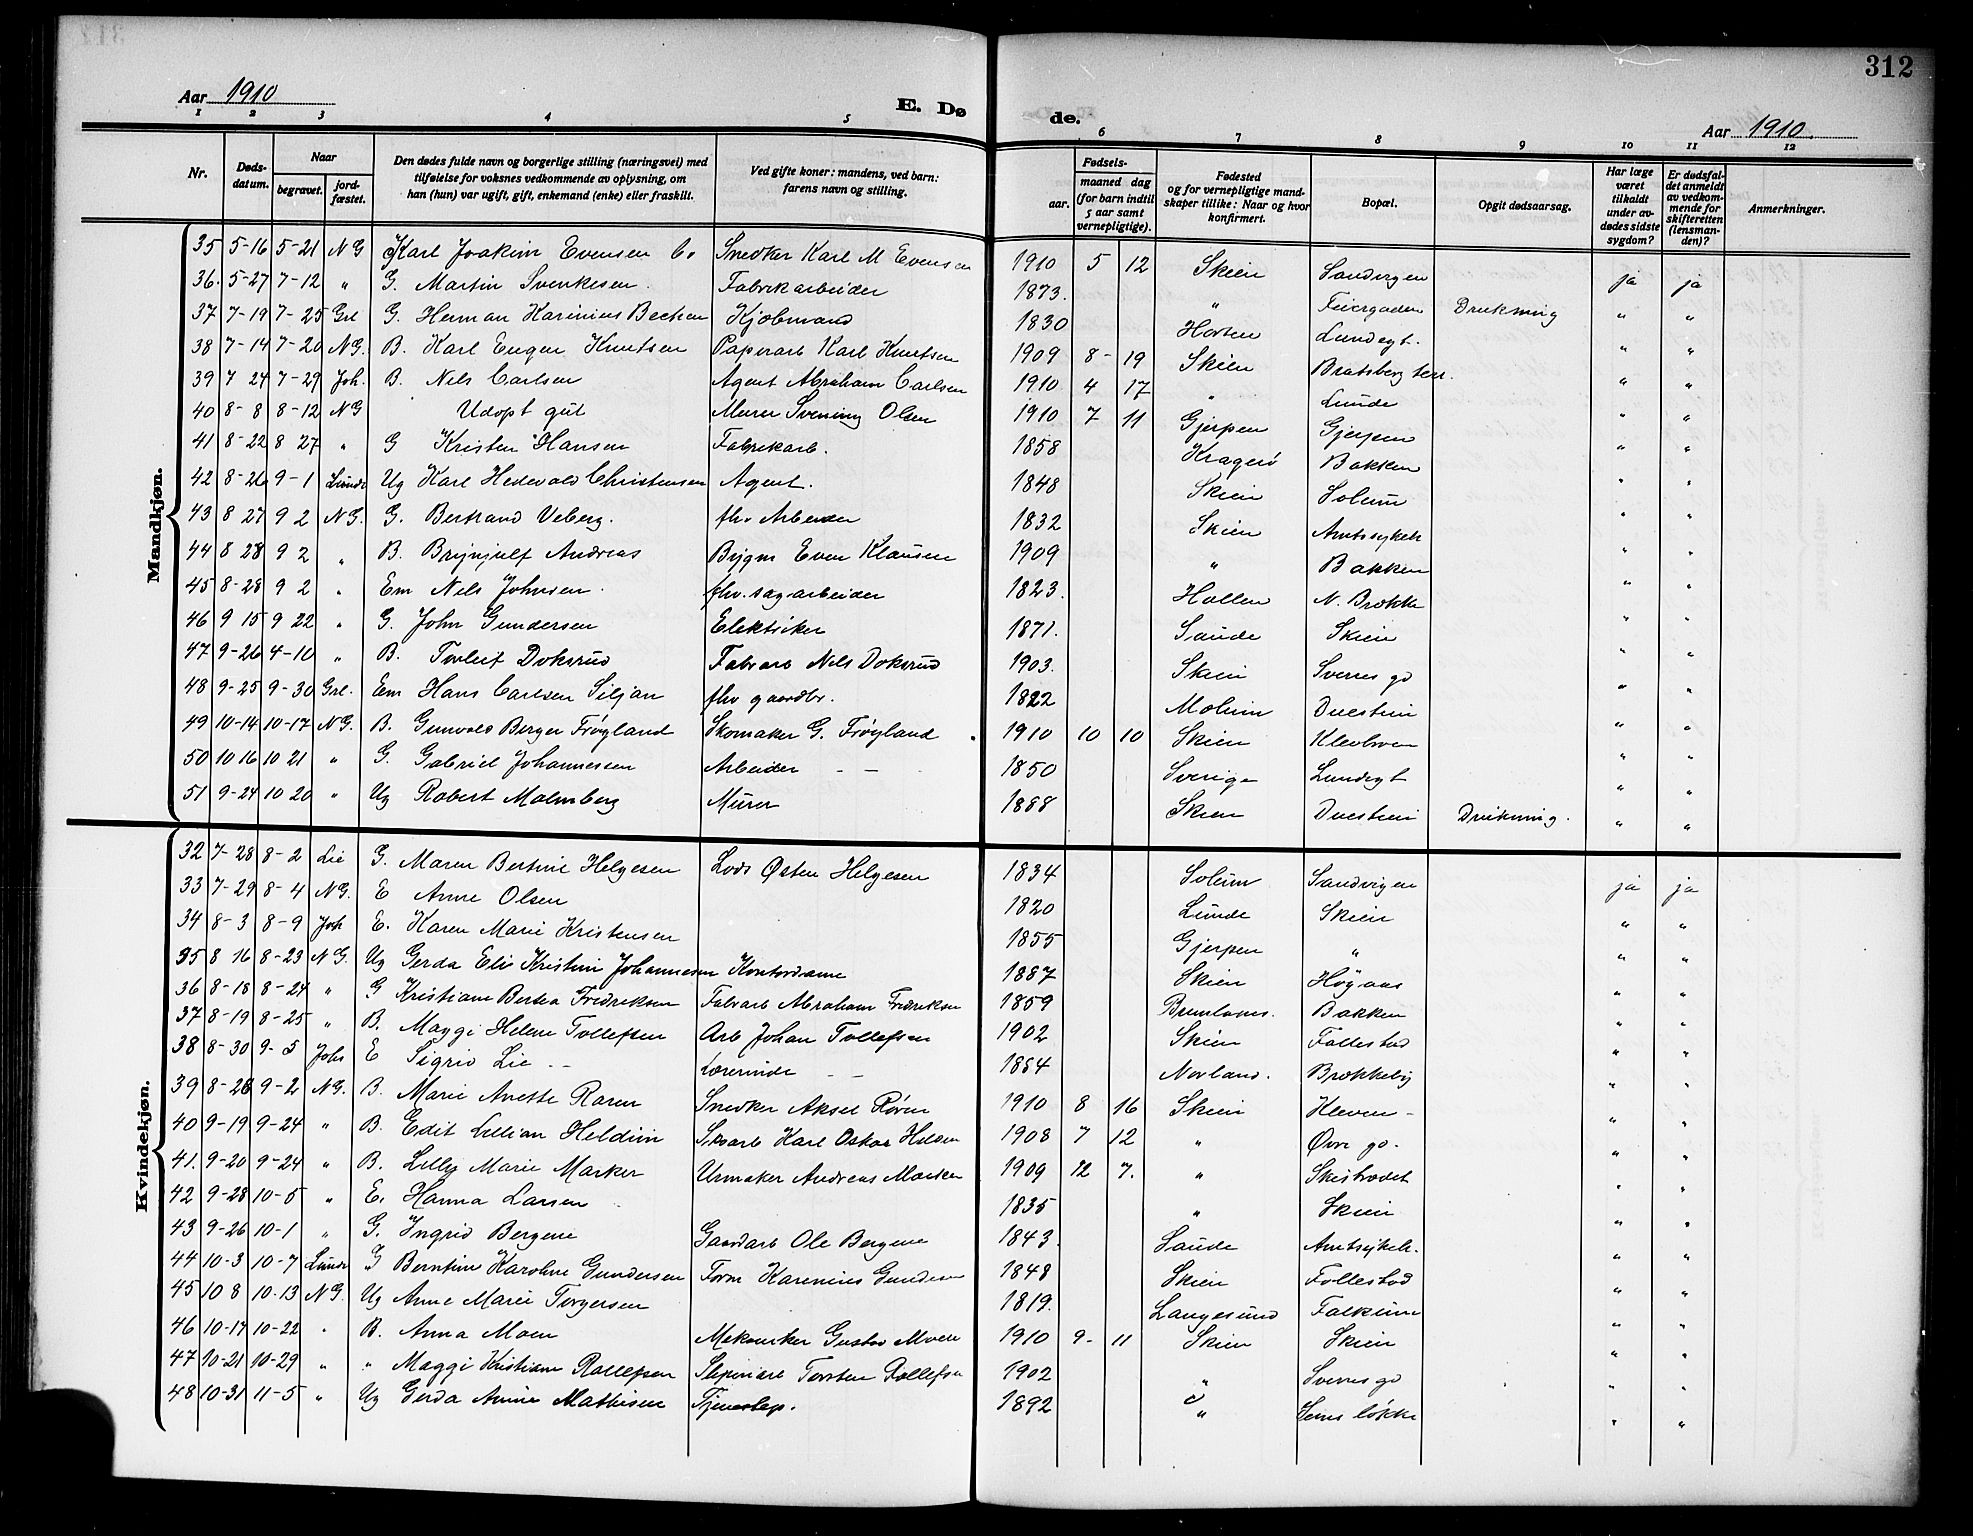 312
Aar 1910
E. Dø
de.
Aar 1910.
1 2 3 4 5 6 7 8 9 10 11 12
Nr. Døds-datum. Naar begravet. jord-fæstet. Den dødes fulde navn og borgerlige stilling (næringsvei) med tilføielse for voksnes vedkommende av oplysning, om han (hun) var ugift, gift, enkemand (enke) eller fraskilt. Ved gifte koner: mandens, ved barn: farens navn og stilling. Fødsels- aar. maaned dag (for barn indtil 5 aar samt vernepligtige). Fødested og for vernepligtige mandskaper tillike: Naar og hvor konfirmert. Bopæl. Opgit dødsaarsag. Har læge været tilkaldt under avdødes sidste sygdom? Er dødsfaldet anmeldt av vedkommende for skifteretten (lensmanden)? Anmerkninger.
Mandkjøn.
35 5-16 5-21 NG Karl Joakim Evensen B. Snedker Karl M Evensen 1910 5 12 Skien Sandvigen ja ja
36. 5-27 7-12 " G. Martin Svenkesen. Fabrikarbeider 1873. " Feiergaden Drukning " "
37 7-19 7-25 Grl G. Herman Karinius Becken Kjøbmand 1830 Horten Lundegt. " "
38 7-14 7-20 NG. B. Karl Eugen Knutsen Papirarb Karl Knutsen 1909 8- 19 Skien Bratsberg terr. " "
39 7 24 7-29 Joh. B. Nils Carlsen Agent Abraham Carlsen 1910. 4 17 " Lunde " "
40 8-8 8-12 NG Udøpt gut Murer Svening Olsen 1910 7 11 Gjerpen Gjerpen " "
41 8-22 8 27 " G Kristen Hansen Fabrikarb. 1858 Kragerø Bakken " "
42 8-26 9-1 Lunde Ug Karl Hedevald Christensen Agent. 1848 Skien Solum " "
43 8 27 9 2 NG. G. Bertrand Veberg. fhv. Arbeider 1832 Skien Amtssykeh " "
44 8 28 9 2 " B. Brynjulf Andreas Bygm Even Klausen 1909 " Bakken " "
45 8-28 9 2 " Em Nils Johnsen. fhv. sagarbeider 1823. Hollen N. Brekke " "
46 9 15 9 22 " G. John Gundersen Elektriker 1871. Saude Skien " "
47 9-26 4-10 " B. Torleif Doksrud Fabrarb Nils Doksrud 1903. Skien Sverres gd " "
48 9-25 9-30 Grl. Em Hans Carlsen Siljan fhv gaardbr. 1822 Molum Duestien " "
49 10-14 10-17 NG. B. Gunvald Berger Frøyland Skomaker G. Frøyland 1910 10 10 Skien Klevbroen " "
50 10 16 10 21 " G. Gabriel Johannessen Arbeider - - 1850 Sverige Lundegt " "
51 9-24 10 20 " Ug Robert Malmberg Murer 1888 Skien Duestien Drukning. " "
Kvindekjøn.
32 7-28 8-2 Lie G. Maren Bertine Helgesen Lods Østen Helgesen 1834 Solum Sandvigen ja ja
33 7-29 8-4 NG. E Anne Olsen 1820 Lunde Skien " "
34 8-3 8-9 Joh E. Karen Marie Kristensen 1855 Gjerpen " " "
35 8 16 8-23 NG. Ug Gerda Elis Kristine Johannesen Kontordame 1887 Skien Høgaas " "
36 8-18 8-24 " G Kristiane Bertea Fredriksen Fabrarb Abraham Fredriksen 1859 Brunlanes. Bakken " "
37 8-19 8-25 " B. Maggi Helene Tollefsen Arb Johan Tollefsen 1902 Skien Follestad " "
38 8-30 9-5 Joh E Sigrid Lie - - Lærerinde - - 1854 Norland. Brekkeby " "
39 8-28 9-2 NG. B. Marie Anette Raren Snedker Aksel Røren 1910 8 16 Skien Kleven - " "
40 9-19 9-24 " B. Edit Lillian Heldine Skoarb Karl Oskar 1908 7 12 " Øvre gd. " "
41. 9-20 9-24 " B. Lilly Marie Marker Urmaker Andreas Marker 1909 12 7. " Skistredet " "
42 9-28 10-5 " E. Hanna Larsen 1835 " Skien " "
43 9-26 10-1 " G. Ingrid Bergene Gaardarb Ole Bergene 1843. Saude Amtsykeh. " "
44 10-3 10-7 Lunde G Berntine Karoline Gundersen Form Karenius Gundersen 1848 Skien Follestad " "
45 10 8 10.13 NG. Ug Anne Marie Torgersen 1819. Langesund Falkum " "
46 10-17 10-22 " B. Anna Moen Gustav Moen 1910 9- 11 Skien Skien " "
47 10-21 10-29 " " Maggi Kristiane Rollefsen Torsten Rollefsen 1902 " Sverres gd " "
48 10-31 11-5 " Ug Gerda Annie Mathisen Tjenestep. 1892 " løkke " "